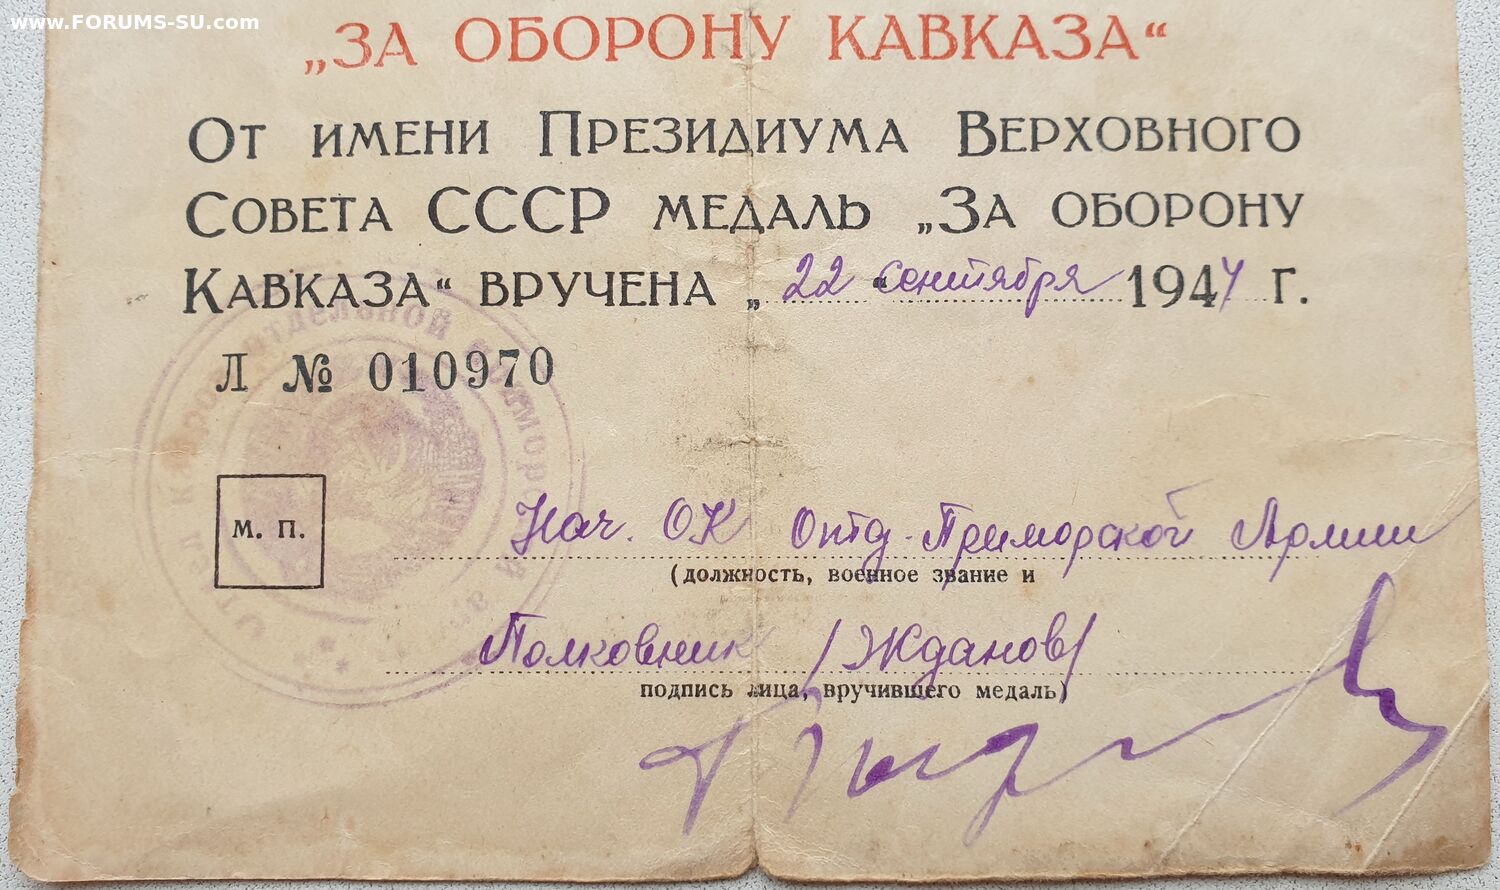 www.FORUMS-SU.com
„ЗА ОБОРОНУ КАВКАЗА“
ОТ ИМЕНИ ПРЕЗИДИУМА ВЕРХОВНОГО
СОВЕТА СССР МЕДАЛЬ „ЗА ОБОРОНУ
КАВКАЗА“ ВРУЧЕНА „22“ сентября 1944 г.
Л № 010970
М. П.
Нач. ОК Отд. Приморской Армии
(должность, военное звание и
Полковник /Жданов/
подпись лица, вручившего медаль)